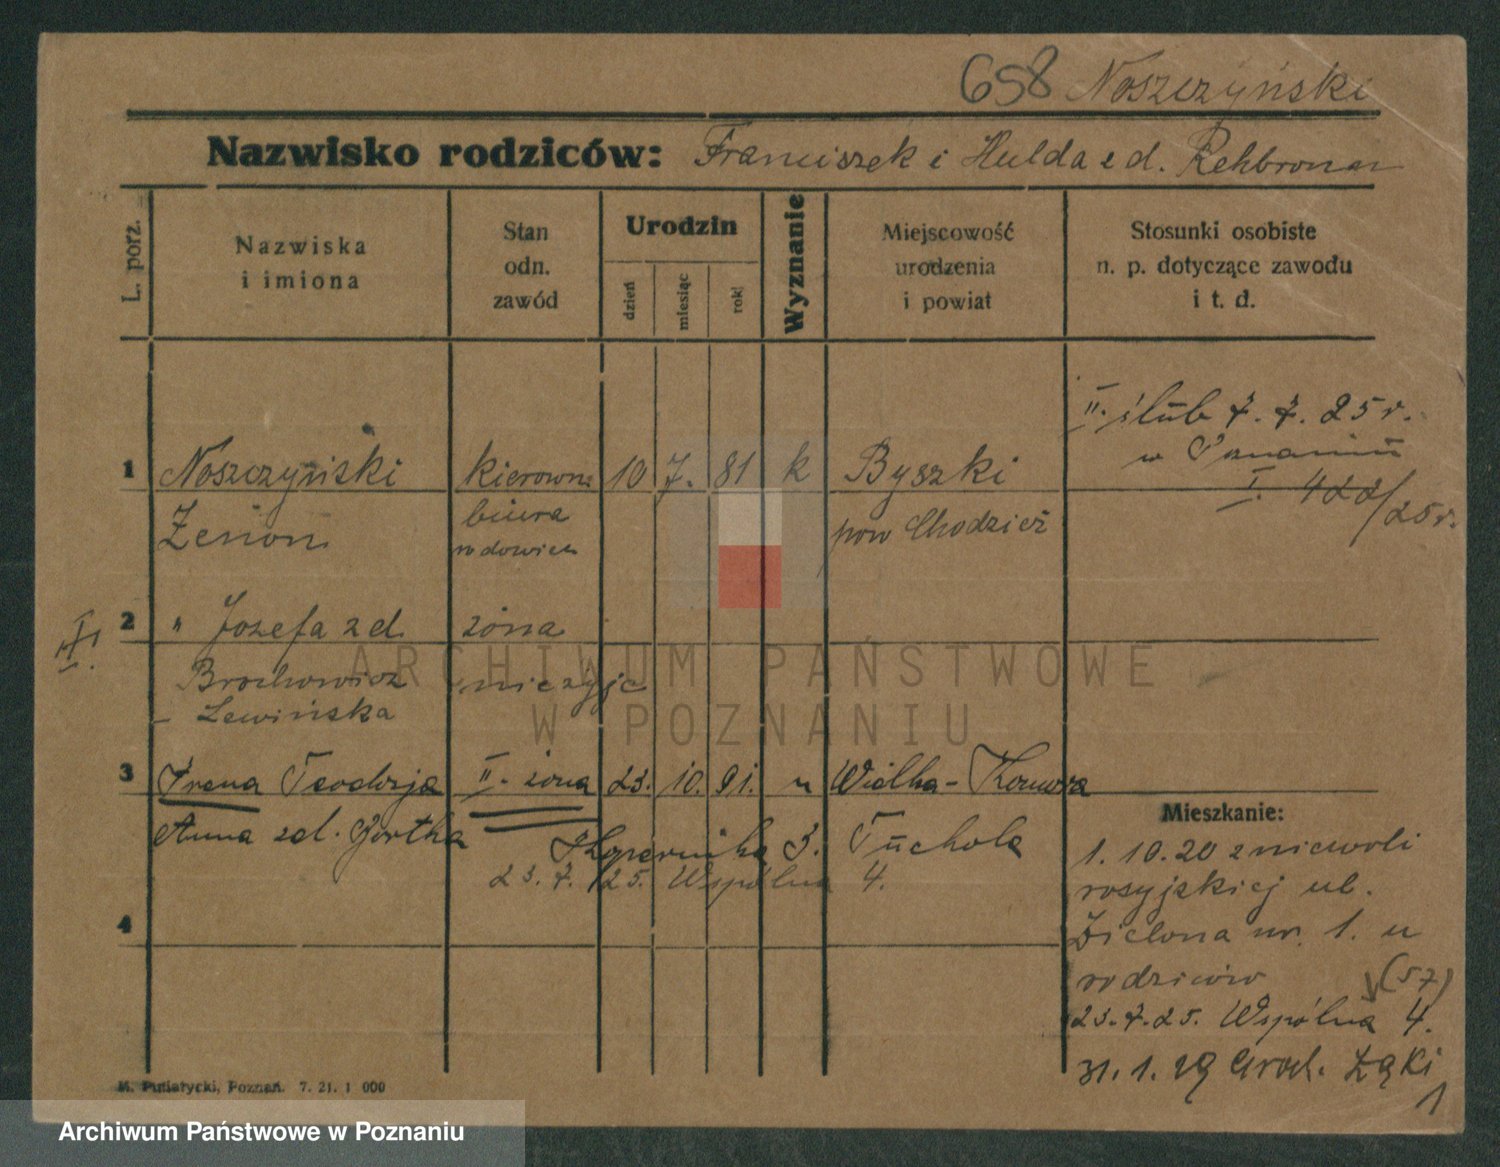 658 Noszczyński
Nazwisko rodziców: Franciszek i Hulda z d. Rehbronn
L. porz.
Nazwiska
i imiona
Stan
odn.
zawód
Urodzin
dzień
miesiąc
rok
Wyznanie
Miejscowość
urodzenia
i powiat
Stosunki osobiste
n. p. dotyczące zawodu
i t. d.
II. ślub 7. 7. 25 r.
w Poznaniu
I. 422/25 r.
1 Noszczyński kierown. 10 7. 81 k Byszki
Zenon biura pow Chodzież
2 " Józefa z d. żona
II.
Brochowicz nie żyje
- Lewińska
3 Irena Teodozja II. żona 23. 10. 91. Wielka-Komorza
Anna zd. Gortka Tuchola
3.
23. 7. 25. Wspólna 4.
4
Mieszkanie:
1. 10. 20 z niewoli
rosyjskiej ul.
Zielona nr. 1. u
rodziców
(57)
23. 7. 25. Wspólna 4.
31. 1. 29 Groch. Łąki
1
M. Putiatycki, Poznań. 7. 21. 1 000
ARCHIWUM PAŃSTWOWE
W POZNANIU
Archiwum Państwowe w Poznaniu